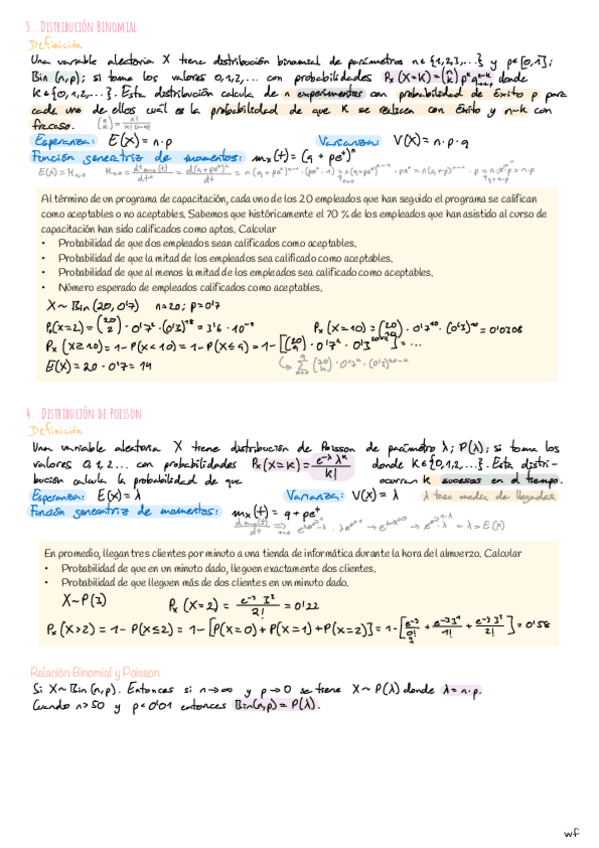 3. Distribución Binomial
Definición
Una variable aleatoria X tiene distribución binomial de parámetros n∈{1,2,3,...} y p∈[0,1];
Bin (n,p); si toma los valores 0,1,2,... con probabilidades Pₓ(X=K)=(n k) pᵏ qⁿ⁻ᵏ donde
K∈{0,1,2,...}. Esta distribución calcula de n experimentos con probabilidad de éxito p para
cada uno de ellos cuál es la probabilidad de que K se realicen con éxito y n-k con
fracaso. (n k) = n!/k!(n-k)!
Esperanza: E(X)=n·p Varianza: V(X)=n·p·q
Función generatriz de momentos: mₓ(t)=(q+peᵗ)ⁿ
Al término de un programa de capacitación, cada uno de los 20 empleados que han seguido el programa se califican
como aceptables o no aceptables. Sabemos que históricamente el 70 % de los empleados que han asistido al curso de
capacitación han sido calificados como aptos. Calcular
• Probabilidad de que dos empleados sean calificados como aceptables.
• Probabilidad de que la mitad de los empleados sea calificado como aceptables.
• Probabilidad de que al menos la mitad de los empleados sea calificado como aceptables.
• Número esperado de empleados calificados como aceptables.
X~Bin(20,0'7) n=20; p=0'7
Pₓ(X=2)=(20 2)·0'7²·(0'3)¹⁸=3'6·10⁻⁸ Pₓ(X=10)=(20 10)·0'7¹⁰·(0'3)¹⁰=0'0308
Pₓ(X≥10)=1-P(X<10)=1-P(X≤9)=1-
E(X)=20·0'7=14
4. Distribución de Poisson
Definición
Una variable aleatoria X tiene distribución de Poisson de parámetro λ; P(λ); si toma los
valores 0,1,2... con probabilidades Pₓ(X=K)=e^-λ λᵏ/k! donde K∈{0,1,2,...}. Esta distri-
bución calcula la probabilidad de que ocurran K sucesos en el tiempo.
Esperanza: E(X)=λ Varianza: V(X)=λ λ tasa media de llegadas
Función generatriz de momentos: mₓ(t)=q+peᵗ
En promedio, llegan tres clientes por minuto a una tienda de informática durante la hora del almuerzo. Calcular
• Probabilidad de que en un minuto dado, lleguen exactamente dos clientes.
• Probabilidad de que lleguen más de dos clientes en un minuto dado.
X~P(3) Pₓ(X=2)=e⁻³ 3²/2!=0'22
Pₓ(X>2)=1-P(X≤2)=1-[P(X=0)+P(X=1)+P(X=2)]=1-[e⁻³/0!+e⁻³3¹/1!+e⁻³3²/2!]=0'58
Relación Binomial y Poisson
Si X~Bin(n,p). Entonces si n→∞ y p→0 se tiene X~P(λ) donde λ=n·p.
Cuando n>50 y p<0'01 entonces Bin(n,p)=P(λ).
wf